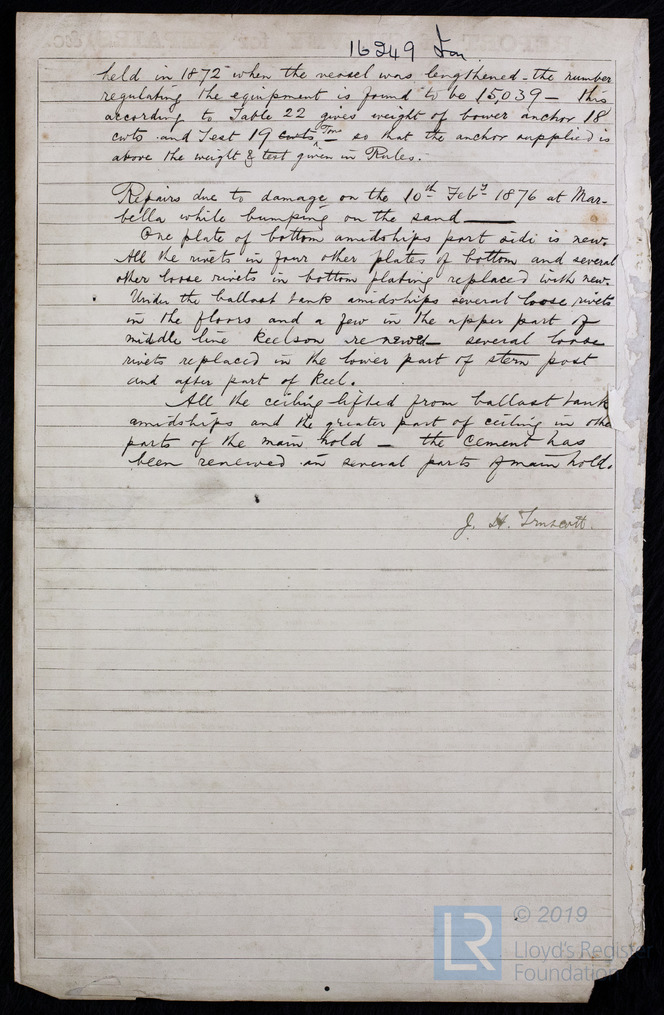 16249 Ion
held in 1872 when the vessel was lengthened - the number
regulating the equipment is found to be 15,039 — this
according to Table 22 gives weight of bower anchor 18
cwts and Test 19 cwts Tons — so that the anchor supplied is
above the weight & test given in Rules.
Repairs due to damage on the 10th Feby 1876 at Mar-
bella while bumping on the sand —
One plate of bottom amidships port side is new.
All the rivets in four other plates of bottom and several
other loose rivets in bottom plating replaced with new.
Under the ballast tank amidships several loose rivets
in the floors and a few in the upper part of
middle line Keelson renewed — several loose
rivets replaced in the lower part of stern post
and after part of Keel.
All the ceiling lifted from ballast tank
amidships and the greater part of ceiling in othe
parts of the main hold — the cement has
been renewed in several parts of main hold.
J. H. Truscott.
LR © 2019
Lloyd's Register
Foundation